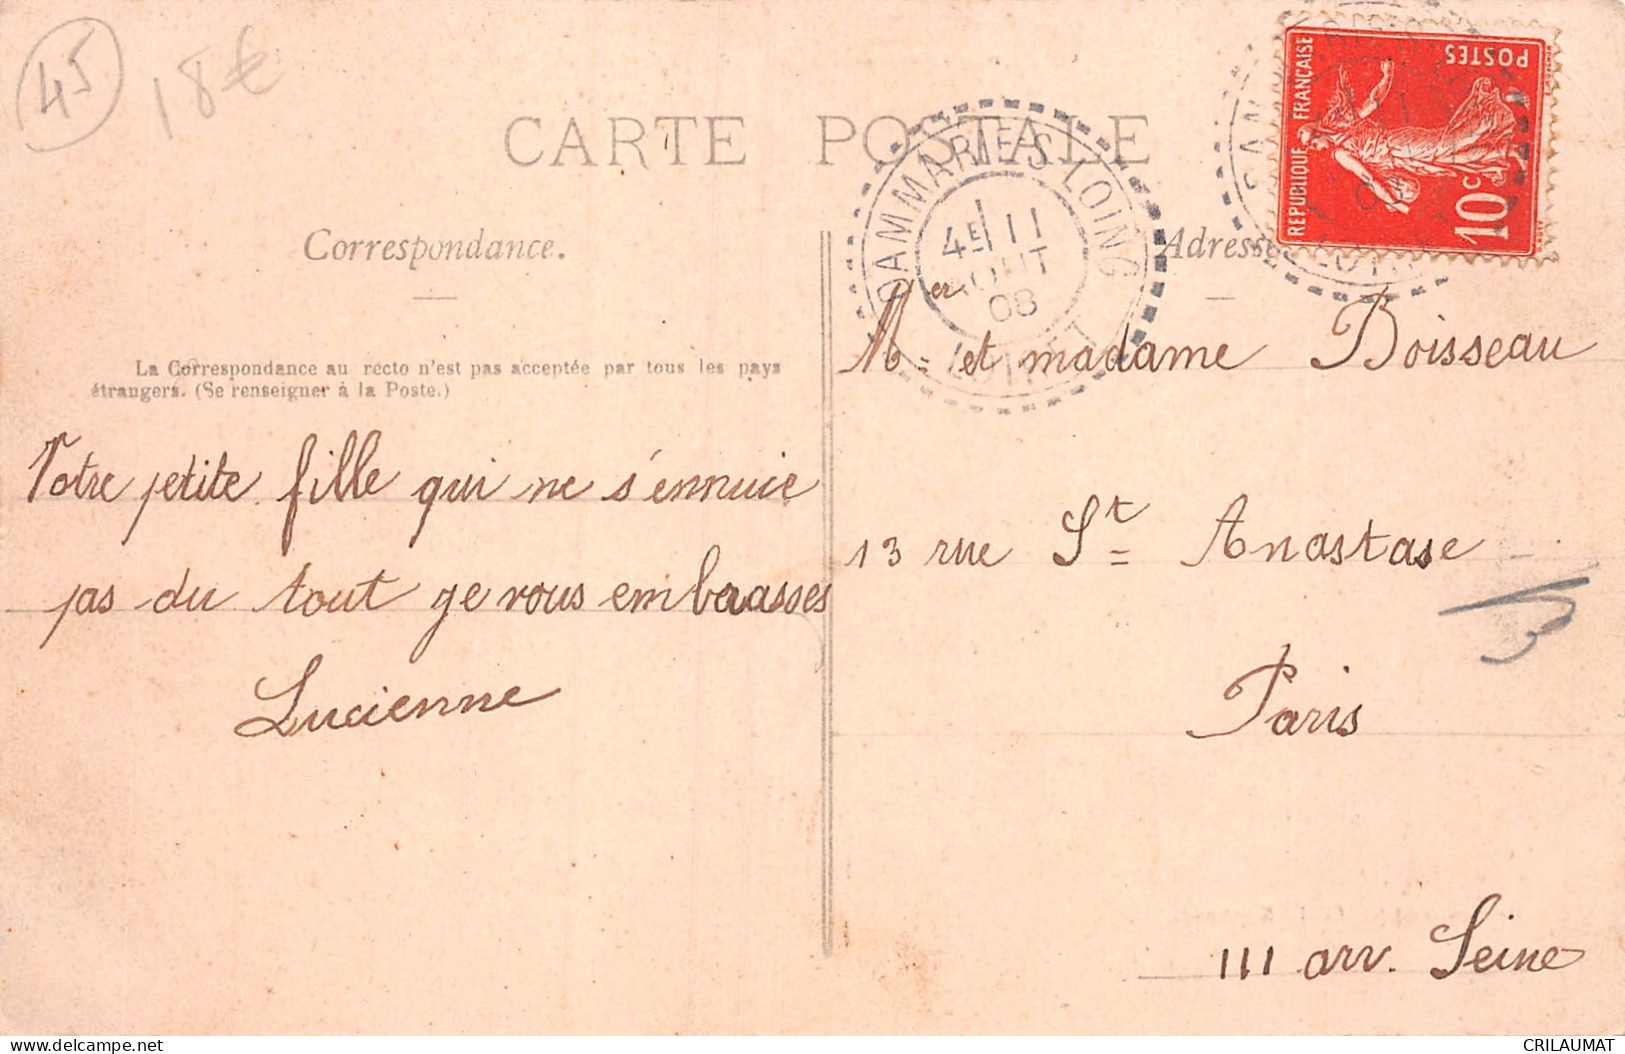 45
18€
CARTE POSTALE
DAMMARIE-S-LOING
4E 11
AOUT
08
LOIRET
REPUBLIQUE FRANÇAISE
POSTES
10c
Correspondance.
Adresse
La Correspondance au recto n'est pas acceptée par tous les pays
étrangers. (Se renseigner à la Poste.)
Votre petite fille qui ne s'ennuie
pas du tout ge vous embrasses
Lucienne
Mer et madame Boisseau
13 rue St Anastase
Paris
III arr. Seine
delcampe.net
CRILAUMAT